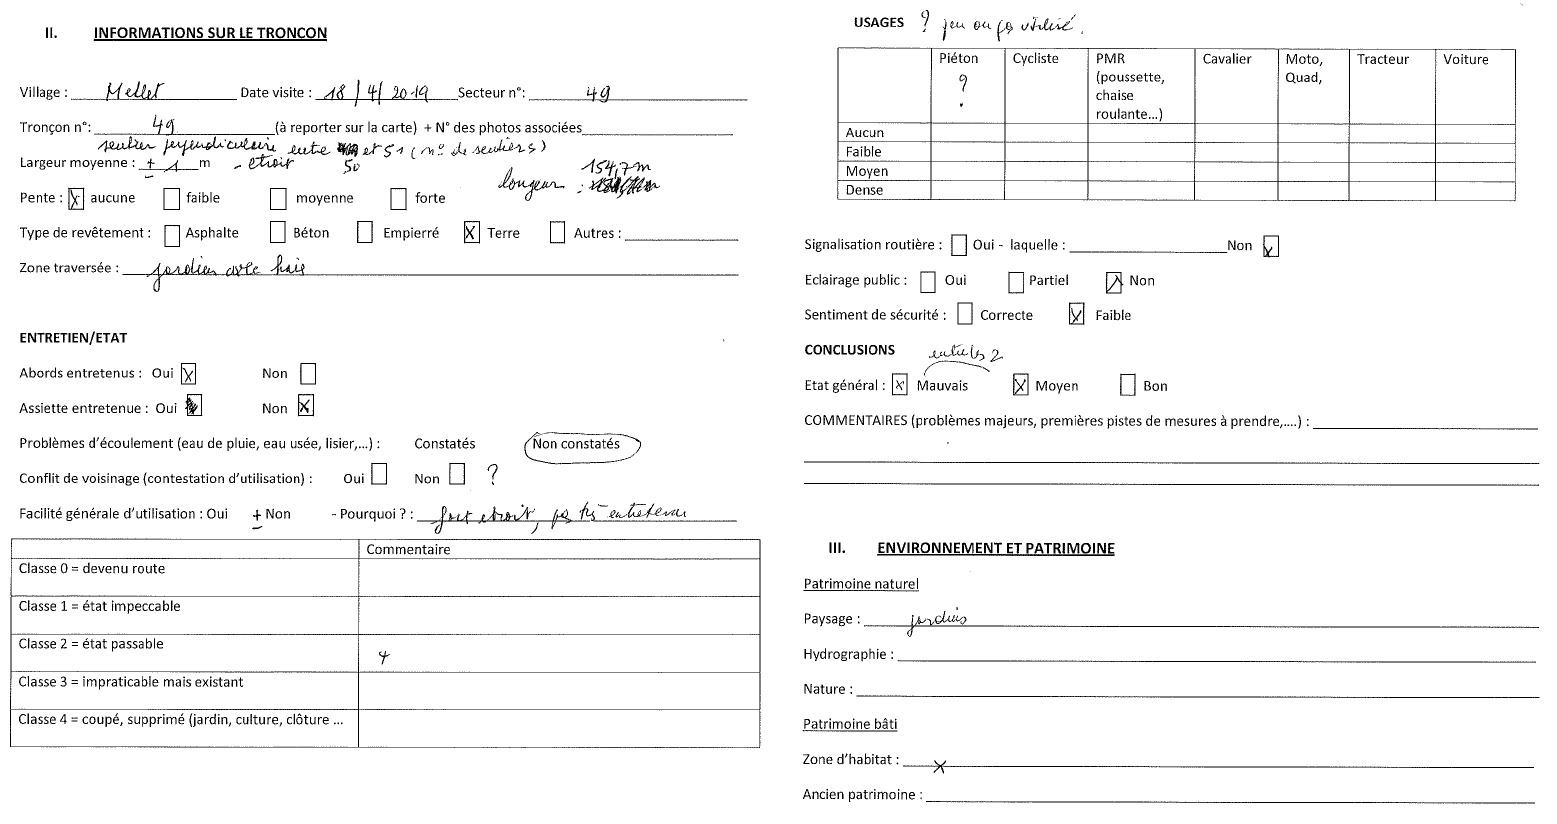 II. INFORMATIONS SUR LE TRONCON
Village : Mellet Date visite : 18/4/2019 Secteur n°: 49
Tronçon n°: 49 (à reporter sur la carte) + N° des photos associées
sentier perpendiculaire entre et 51 (n° de sentiers)
50
Largeur moyenne : ± 1 m - etroit
longueur : 154,7m
Pente : X aucune faible moyenne forte
Type de revêtement : Asphalte Béton Empierré X Terre Autres :
Zone traversée : jardins avec haie
ENTRETIEN/ETAT
Abords entretenus : Oui X Non
Assiette entretenue : Oui Non X
Problèmes d'écoulement (eau de pluie, eau usée, lisier,...) : Constatés Non constatés
Conflit de voisinage (contestation d'utilisation) : Oui Non ?
Facilité générale d'utilisation : Oui ± Non - Pourquoi ? : fort etroit, pas très entretenu
Commentaire
Classe 0 = devenu route
Classe 1 = état impeccable
Classe 2 = état passable +
Classe 3 = impraticable mais existant
Classe 4 = coupé, supprimé (jardin, culture, clôture ...
USAGES ? peu ou pas utilisé.
Piéton Cycliste PMR Cavalier Moto, Tracteur Voiture
? (poussette, Quad,
chaise
roulante...)
Aucun
Faible
Moyen
Dense
Signalisation routière : Oui - laquelle : Non X
Eclairage public : Oui Partiel X Non
Sentiment de sécurité : Correcte X Faible
CONCLUSIONS entre les 2
Etat général : X Mauvais X Moyen Bon
COMMENTAIRES (problèmes majeurs, premières pistes de mesures à prendre,....) :
III. ENVIRONNEMENT ET PATRIMOINE
Patrimoine naturel
Paysage : jardins
Hydrographie :
Nature :
Patrimoine bâti
Zone d'habitat : X
Ancien patrimoine :